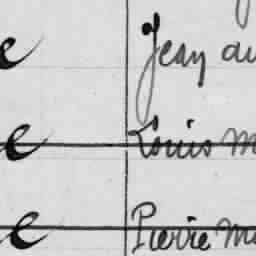 e Jean au
e Louis M
e Pierre Ma